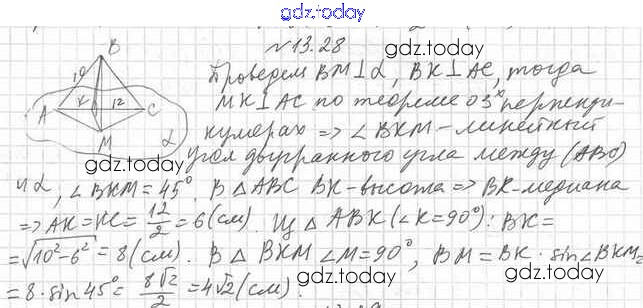 gdz.today
№13.28
gdz.today
B
10
K
12
A
C
M
α
Проведем BM⊥α, BK⊥AC, тогда
MK⊥AC по теореме о 3х перпенди-
кулярах ⇒ ∠BKM - линейный
угол двугранного угла между (ABC)
gdz.today
gdz.today
gdz.today
и α, ∠BKM = 45°. В △ABC BK-высота ⇒ BK-медиана
⇒ AK = KC = 12/2 = 6 (см). Из △ABK (∠K = 90°): BK =
= √10²-6² = 8 (см). В △BKM ∠M = 90°, BM = BK · sin∠BKM =
= 8 · sin45° = 8√2/2 = 4√2 (см).
gdz.today
gdz.today
gdz.today
gdz.today